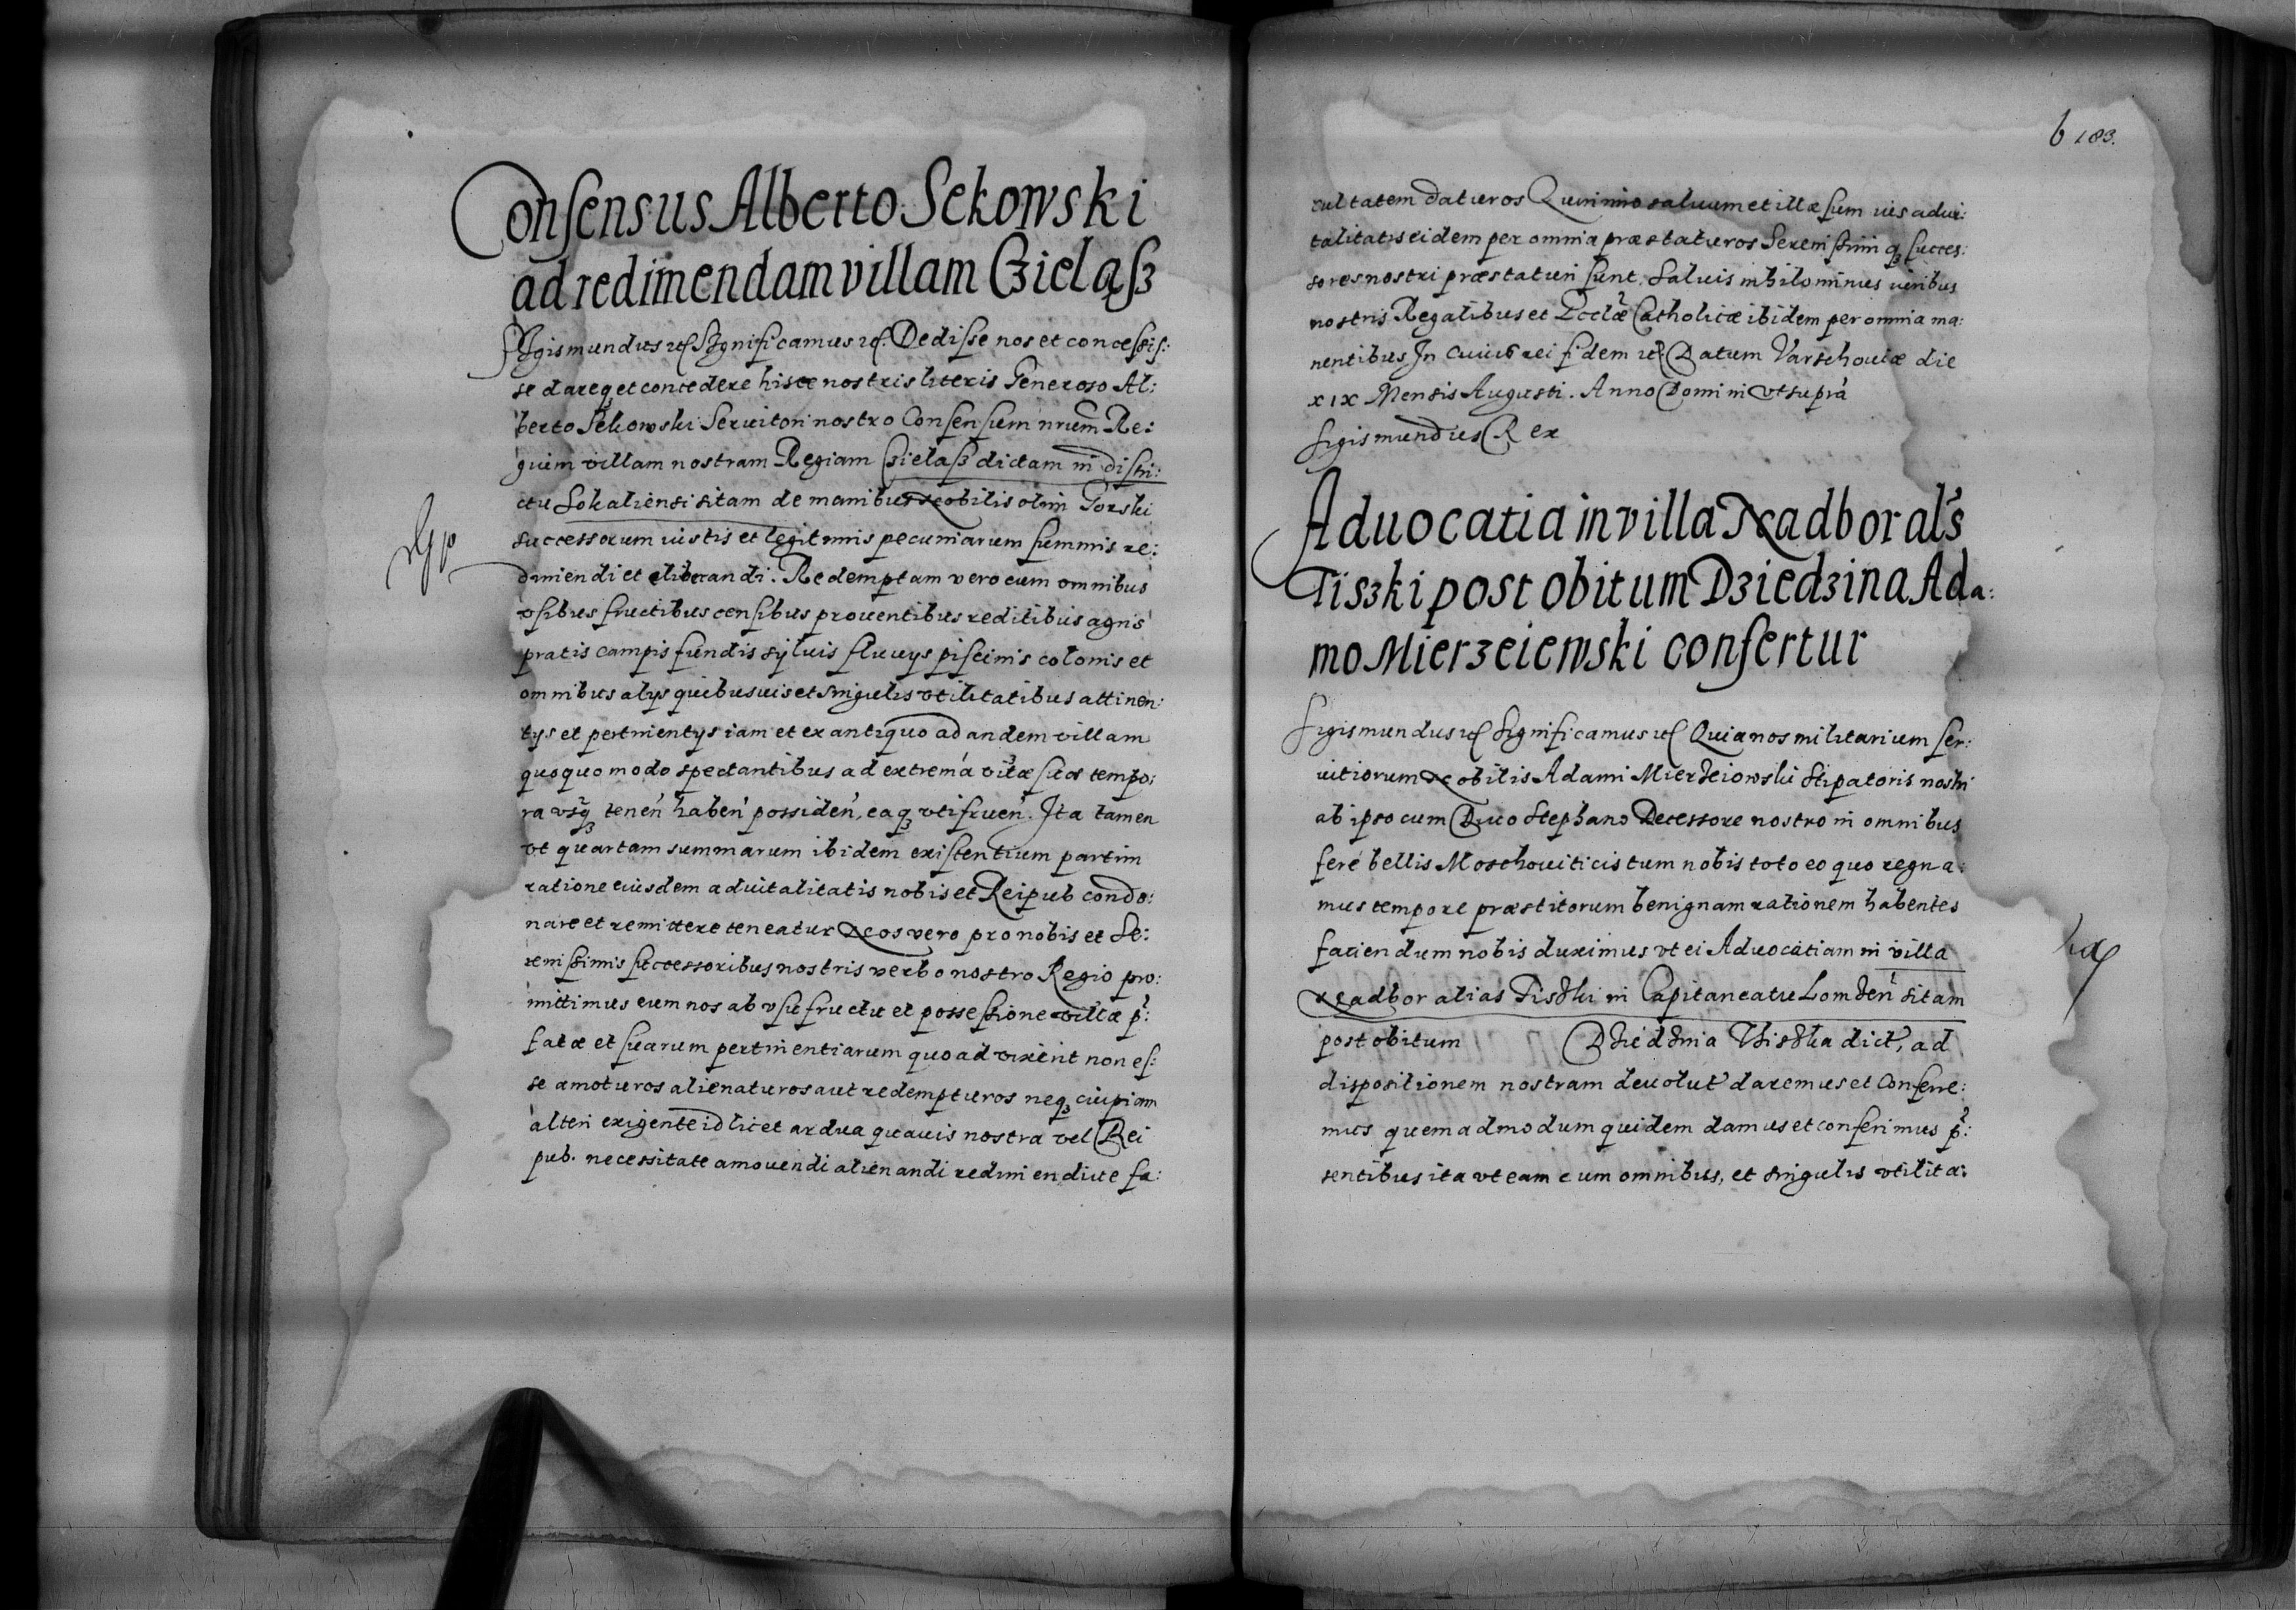 Consensus Alberto Sekowski
ad redimendam villam Czieląsz
Sigismundus etc Significamus etc. Dedisse nos et concessis:
se dareq3 et concedere hisce nostris literis Generoso Al:
berto Sekowski Seruitori nostro Consensum nrum Re:
gium villam nostram Regiam Czielasz dictam in distri:
ctu Sokaliensi sitam de manibus Nobilis olim Gorski
successorum iustis et legitimis pecuniarum summis re:
dimendi et eliberandi. Redemptam vero cum omnibus
vsibus fructibus censibus prouentibus reditibus agris
pratis campis fundis syluis fluuys piscinis colonis et
omnibus alys quibusuis et singulis vtilitatibus attinen:
tys et pertinentys iam et ex antiquo ad andem villam
quoquo modo spectantibus ad extrema vitæ suæ tempo:
ra vsq3 tenen haben possiden, eaq3 vtifruen. Ita tamen
vt quartam summarum ibidem existentium partim
ratione eiusdem aduitalitatis nobis et Reipub condo:
nare et remittere teneatur Nos vero pro nobis et Se:
renissimis successoribus nostris verbo nostro Regio pro:
mittimus eum nos ab vsu fructu et possessione villæ p:
fatæ et suarum pertinentiarum quoad vixerit non es:
se amoturos alienaturos aut redempturos neq3 cuipiam
alteri exigente id licet ardua quauis nostra vel Rei
pub. necessitate amouendi alienandi redimendiue fa:
b 183.
cultatem daturos Quinimo saluum et illæsum ius adui:
talitatis eidem per omnia præstaturos Serenissimiq3 succes:
sores nostri præstaturi sunt. Saluis nihilominus iuribus
nostris Regalibus et Ecclæ Catholicæ ibidem per omnia ma:
nentibus In cuius rei fidem etc Datum Varschouiæ die
xix Mensis Augusti. Anno Domini vt supra
Sigismundus Rex
Aduocatia in villa Nadbor als
Tiszki post obitum Dziedzina Ada:
mo Mierzeiewski confertur
Sigismundus etc Significamus etc Quia nos militarium ser:
uitiorum Nobilis Adami Mierzeiowski Stipatoris nostri
ab ipso cum Diuo Stephano Decessore nostro in omnibus
fere bellis Moschouiticis tum nobis toto eo quo regna:
mus tempore præstitorum benignam rationem habentes
faciendum nobis duximus vt ei Aduocatiam in villa
Nadbor alias Tiszki in Capitaneatu Lomzen sitam
post obitum Dziedzina Thiszka dict, ad
dispositionem nostram deuolut daremus et Conferre:
mus quemadmodum quidem damus et conferimus p:
sentibus ita vt eam cum omnibus, et singulis vtilita: